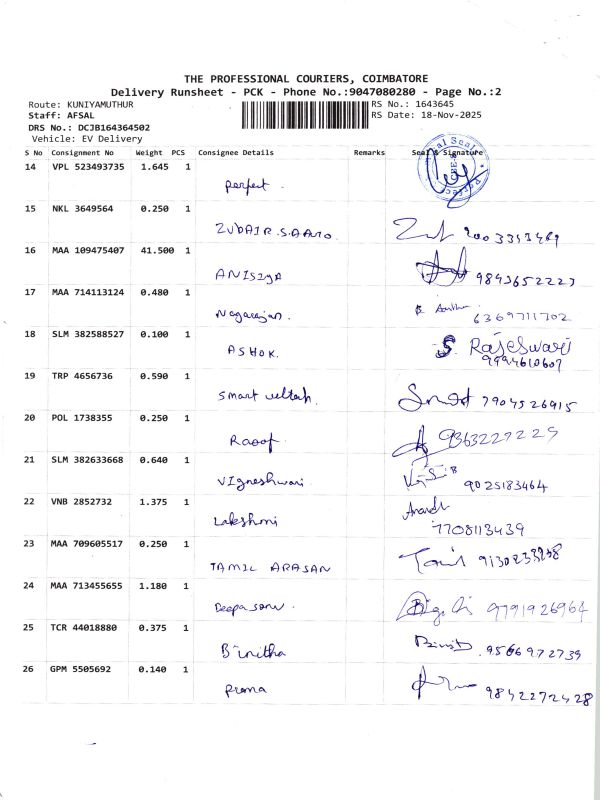 THE PROFESSIONAL COURIERS, COIMBATORE
Delivery Runsheet - PCK - Phone No.:9047080280 - Page No.:2
Route: KUNIYAMUTHUR RS No.: 1643645
Staff: AFSAL RS Date: 18-Nov-2025
DRS No.: DCJB164364502
Vehicle: EV Delivery
S No Consignment No Weight PCS Consignee Details Remarks Seal & Signature
14 VPL 523493735 1.645 1
perfect.
15 NKL 3649564 0.250 1
ZUBAIR.S.AAuto.
16 MAA 109475407 41.500 1
ANISIYA 9843652223
17 MAA 714113124 0.480 1
Nagarajan. 6369711702
18 SLM 382588527 0.100 1
ASHOK. S. RajeSwari
9994610607
19 TRP 4656736 0.590 1
smart 7904526915
20 POL 1738355 0.250 1
Raoof 9363229229
21 SLM 382633668 0.640 1
VIgneshwari 9025183464
22 VNB 2852732 1.375 1
Lakshmi Anandh
7708113439
23 MAA 709605517 0.250 1
TAMIL ARASAN
24 MAA 713455655 1.180 1
Deepa sonu. 9791926964
25 TCR 44018880 0.375 1
Binitha 9566972739
26 GPM 5505692 0.140 1
prema 9842272428